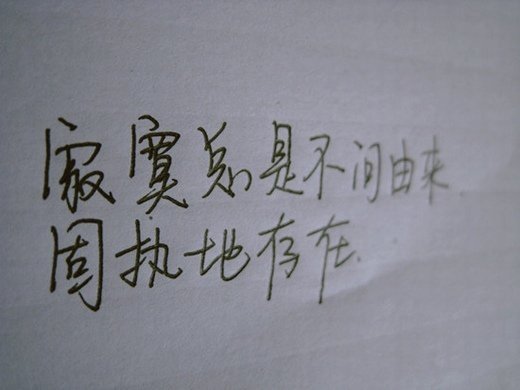 寂寞总是不问由来
固执地存在.